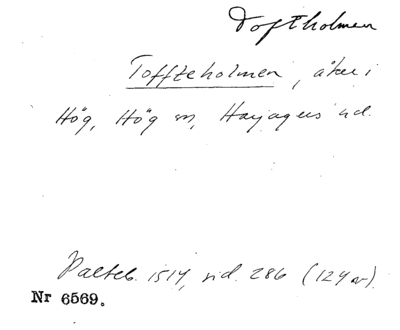 Toftholmen
Toffteholmen, åker i
Hög, Hög sn, Harjagers hd.
Palteb. 1514, sid. 286 (124 av).
Nr 6569.